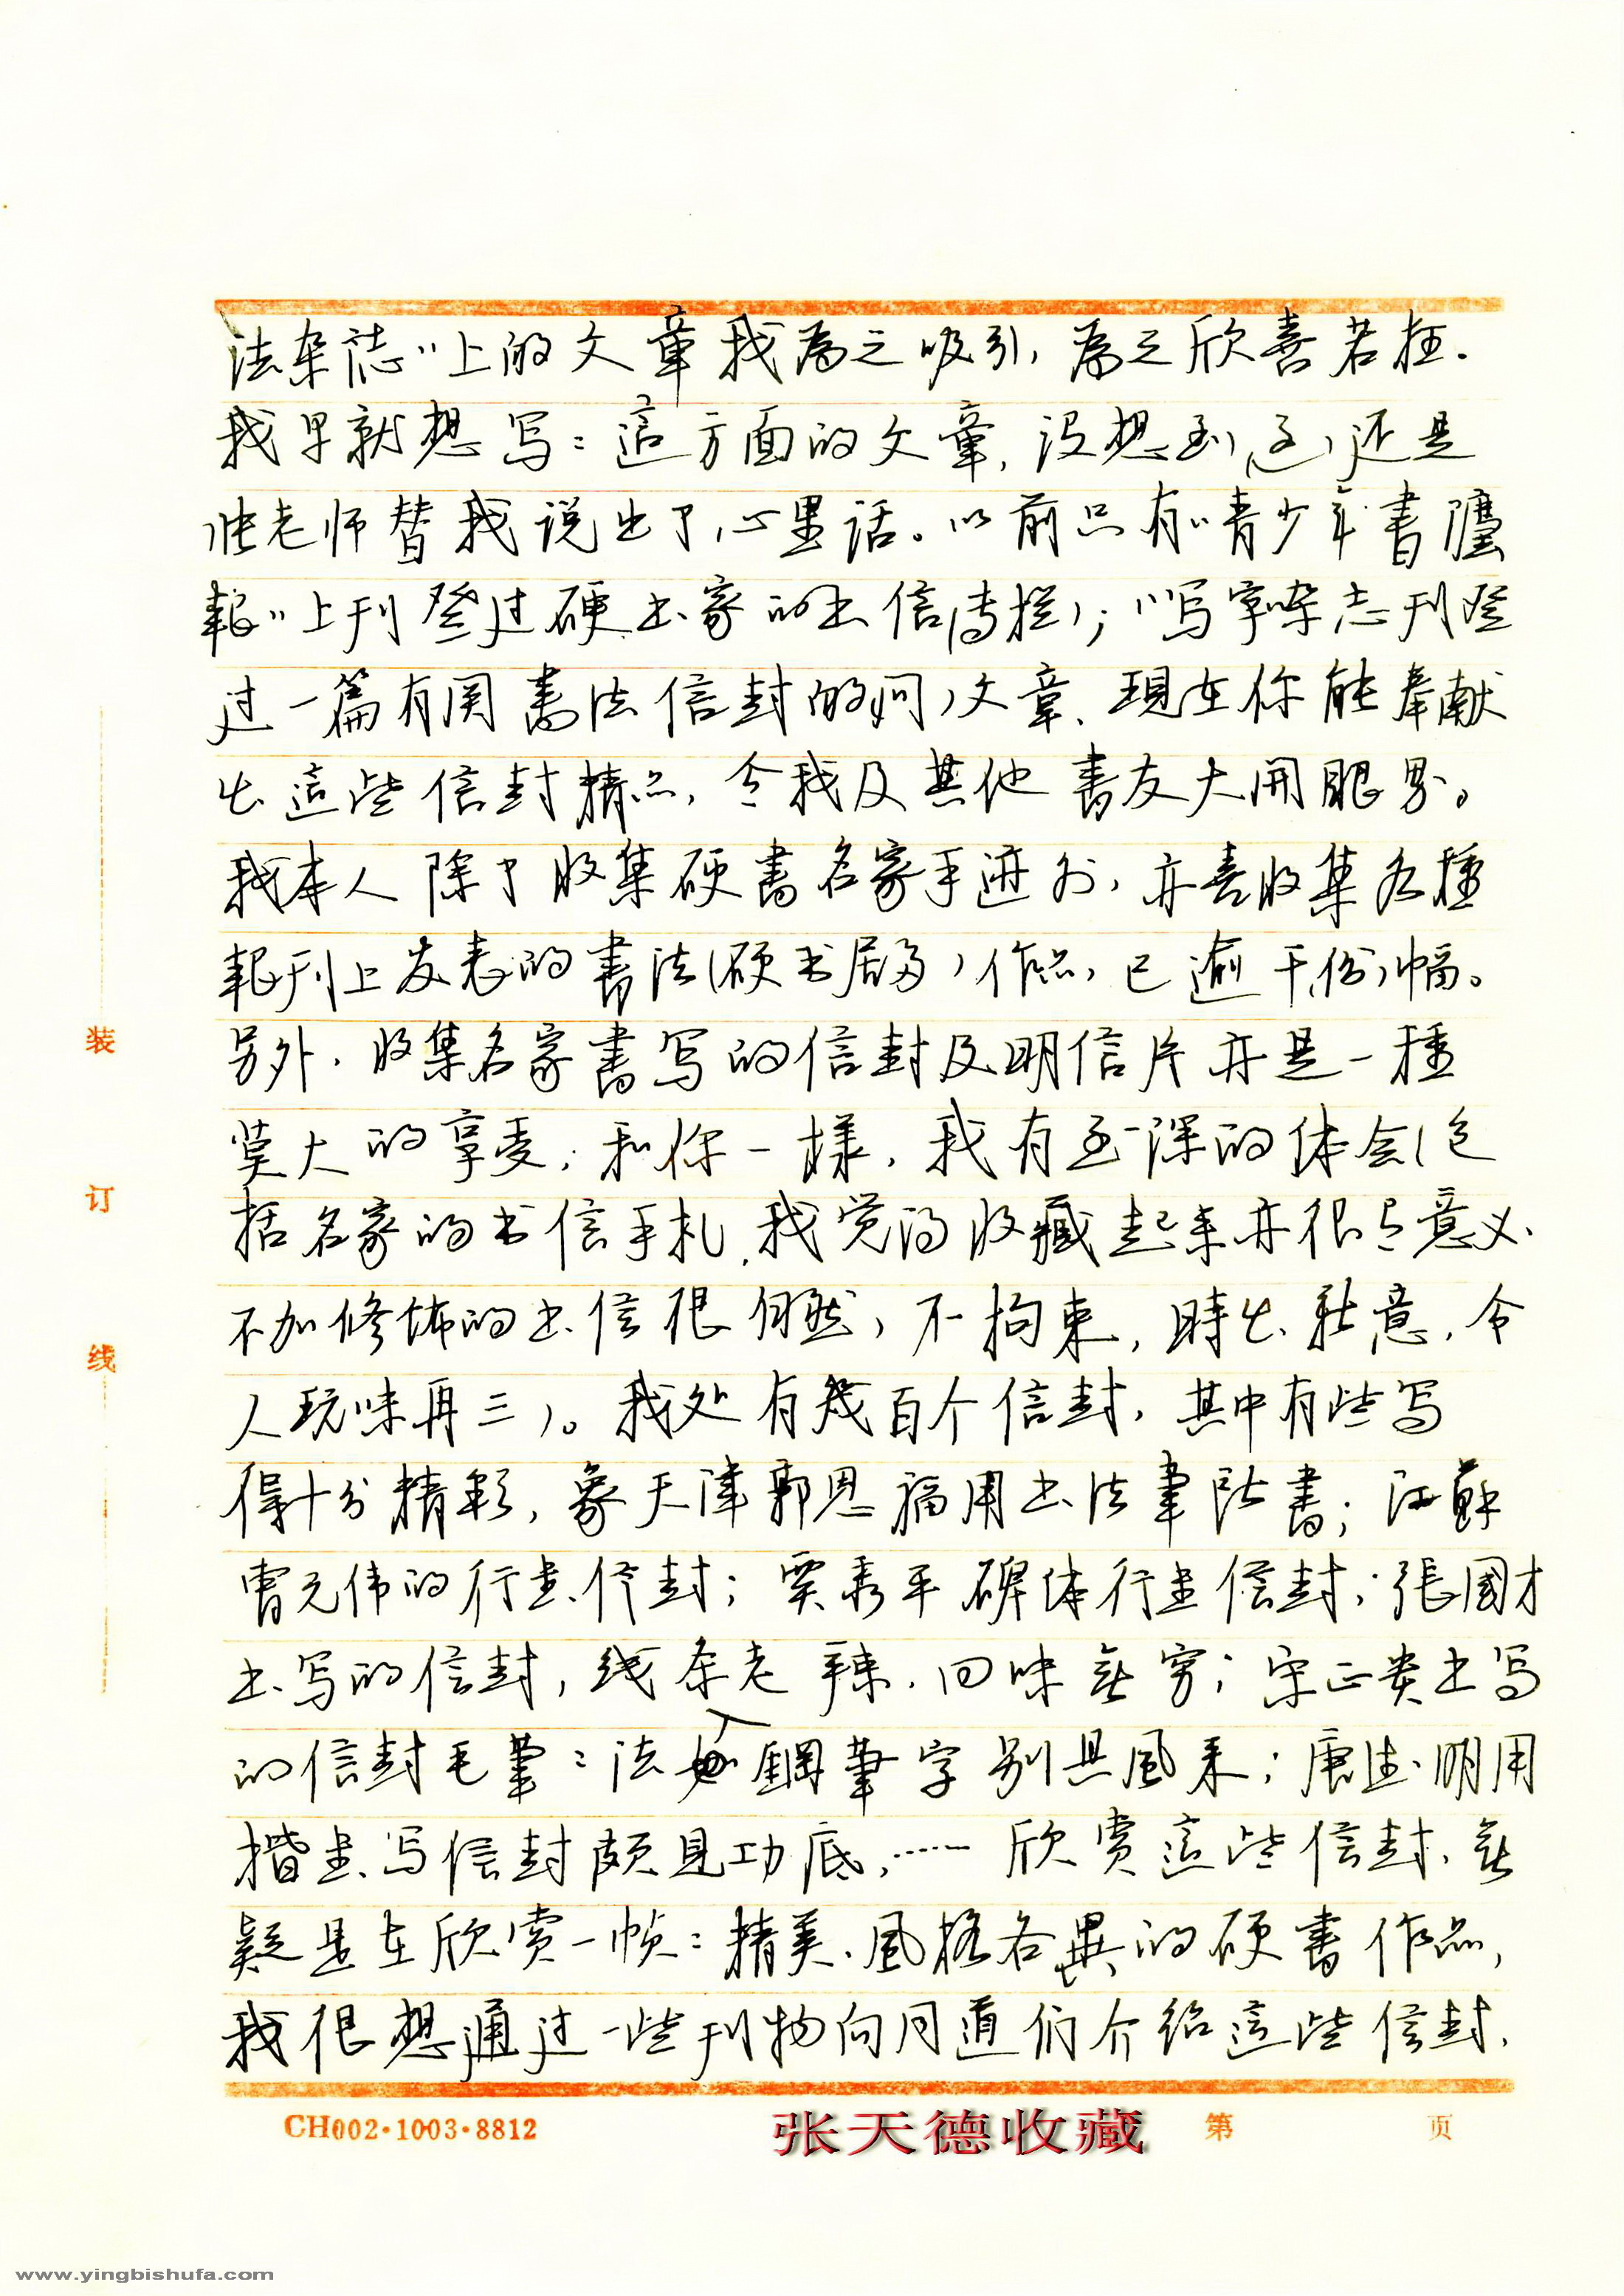 法杂誌"上的文章我為之吸引，為之欣喜若狂。
我早就想写：這方面的文章，没想到(这)还是
张老师替我说出了心里话。以前只有"青少年書法
報"上刊登过硬书家的书信(专栏)；"写字杂志刊登
过一篇有関書法信封的文章、現在你能奉献
出這些信封精品，令我及其他書友大開眼界。
我本人除了收集硬書名家手迹外，亦喜收集各種
報刊上发表的書法(硬书居多)作品，已逾千(份)幅。
另外，收集名家書写的信封及明信片亦是一種
莫大的享受，和你一樣，我有至深的体会(包
括名家的书信手札，我觉得收藏起来亦很有意义、
不加修饰的书信很自然，不拘束，時出新意，令
人玩味再三)。我处有幾百个信封，其中有些写
得十分精彩，象天津郭恩福用书法筆法書；江蘇
曹元伟的行书信封；贾秀平碑体行书信封；張國才
书写的信封，线条老辣，回味無穷；宋正贵书写
的信封毛筆：法入鋼筆字别具風采；唐建明用
楷书写信封颇見功底，……欣赏這些信封，無
疑是在欣赏一帧：精美、風格各異的硬書作品，
我很想通过一些刊物向同道们介绍這些信封，
装
订
线
CH002·1003·8812
张天德收藏
第 页
www.yingbishufa.com